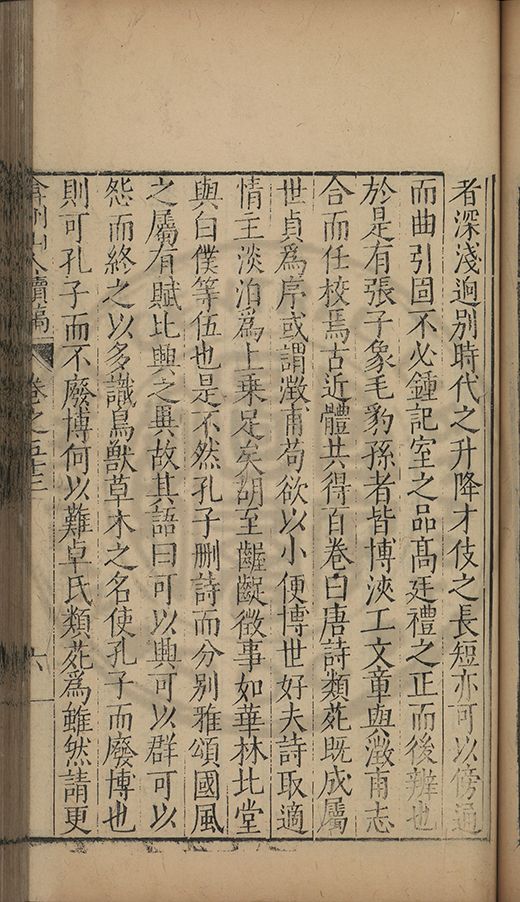 者深淺逈別時代之升降才伎之長短亦可以傍通
而曲引固不必鍾記室之品髙廷禮之正而後辨也
於是有張子象毛豹孫者皆博浹工文章與澂甫志
合而任校焉古近體共得百卷曰唐詩類苑既成屬
世貞為序或謂澂甫茍欲以小便博世好夫詩取適
情主淡泊爲上乗足矣胡至齷齪徴事如華林北堂
與白僕等伍也是不然孔子删詩而分别雅頌國風
之屬有賦比興之異故其語曰可以興可以群可以
怨而終之以多識鳥獸草木之名使孔子而廢博也
則可孔子而不廢博何以難卓氏類苑爲雖然請更
弇州山人續稿 卷之五十三 六